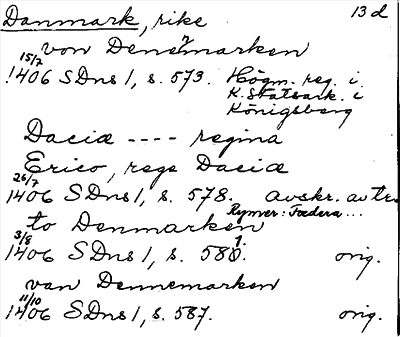 Danmark, rike 13 d
von Denemarken
15/7
1406 SDns 1, s. 573. Högm. reg. i
K. Statsark. i
Königsberg
Daciæ ---- regina
Erico, rege Daciæ
26/7
1406 SDns 1, s. 578. avskr. av tr.
Rymer: Fœdera...
to Denmarken
3/8
1406 SDns 1, s. 581. orig.
van Dennemarken
11/10
1406 SDns 1, s. 587. orig.